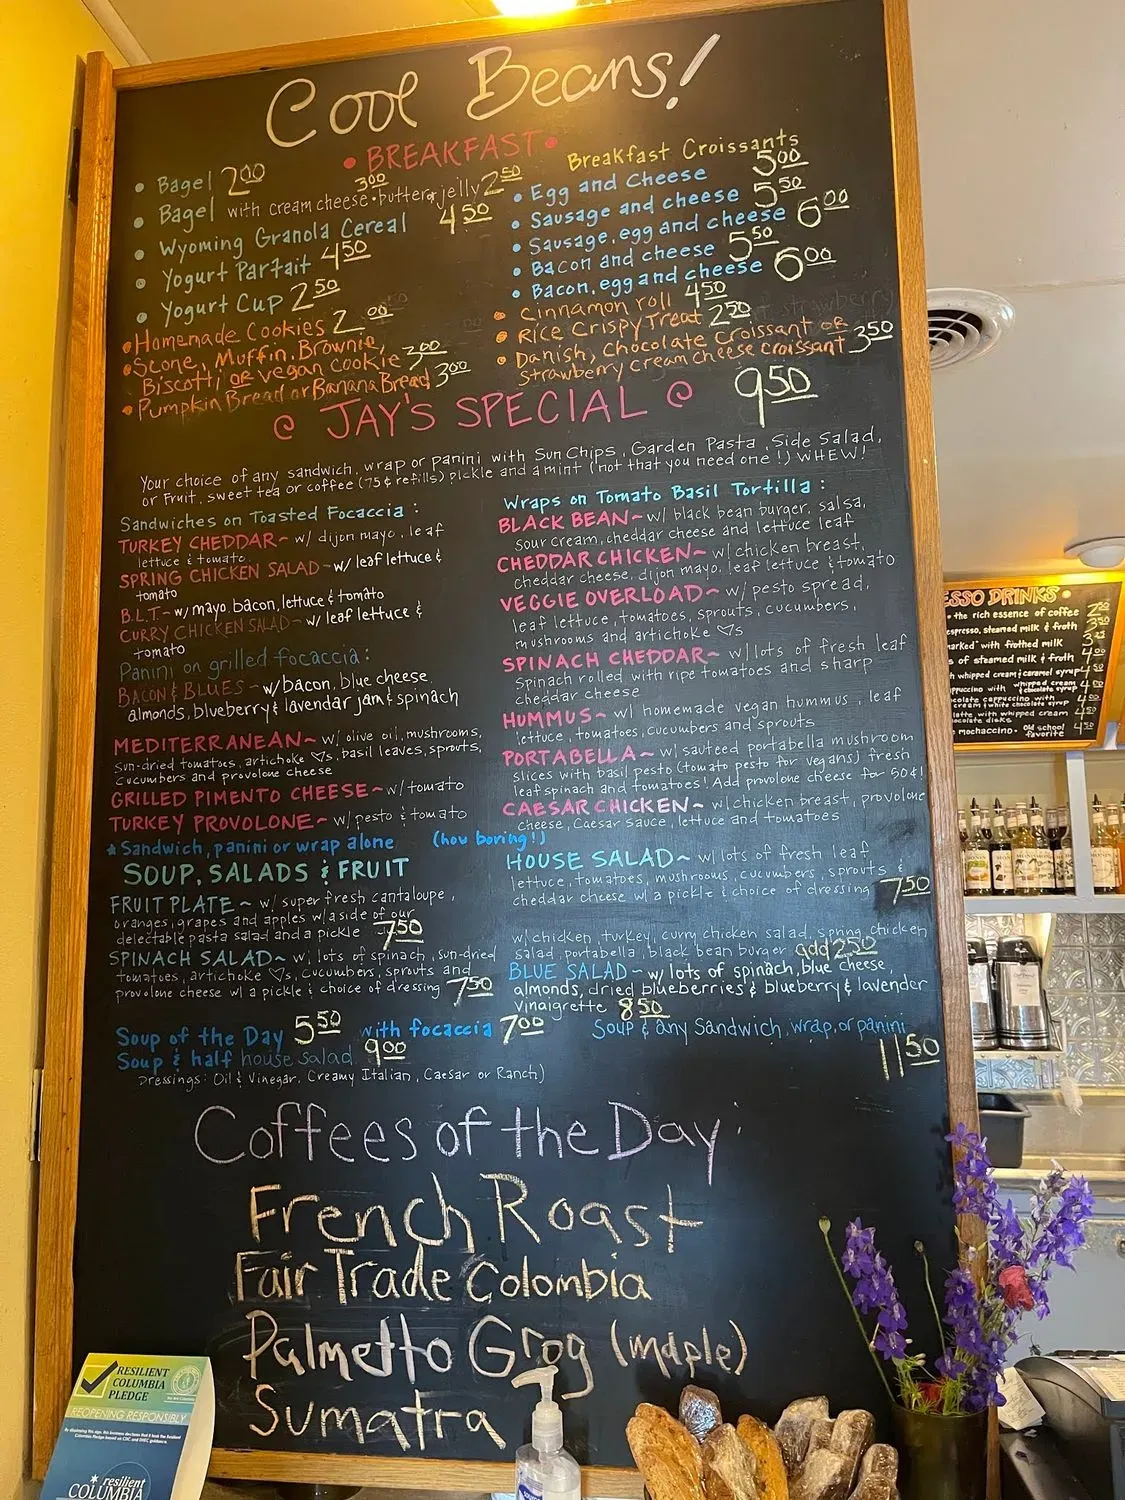 Cool Beans!
• BREAKFAST •
• Bagel 2.00
• Bagel with cream cheese 3.00 • butter & jelly 2.50
• Wyoming Granola Cereal 4.50
• Yogurt Parfait 4.50
• Yogurt Cup 2.50
• Homemade Cookies 2.00
• Scone, Muffin, Brownie,
Biscotti or vegan cookie 3.00
• Pumpkin Bread or Banana Bread 3.00
Breakfast Croissants
• Egg and Cheese 5.00
• Sausage and cheese 5.50
• Sausage, egg and cheese 6.00
• Bacon and cheese 5.50
• Bacon, egg and cheese 6.00
• Cinnamon roll 4.50
• Rice Crispy Treat 2.50
• Danish, Chocolate Croissant or
Strawberry cream cheese croissant 3.50
@ JAY'S SPECIAL @ 9.50
Your choice of any sandwich, wrap or panini with Sun Chips, Garden Pasta, Side Salad,
or Fruit, sweet tea or coffee (75¢ refills) pickle and a mint (not that you need one!) WHEW!
Sandwiches on Toasted Focaccia:
TURKEY CHEDDAR~ w/ dijon mayo, leaf
lettuce & tomato
SPRING CHICKEN SALAD~ w/ leaf lettuce &
tomato
B.L.T.~ w/ mayo, bacon, lettuce & tomato
CURRY CHICKEN SALAD~ w/ leaf lettuce &
tomato
Panini on grilled focaccia:
BACON & BLUES~ w/ bacon, blue cheese
almonds, blueberry & lavendar jam & spinach
MEDITERRANEAN~ w/ olive oil, mushrooms,
sun-dried tomatoes, artichoke ♡s, basil leaves, sprouts,
cucumbers and provolone cheese
GRILLED PIMENTO CHEESE~ w/ tomato
TURKEY PROVOLONE~ w/ pesto & tomato
* Sandwich, panini or wrap alone (how boring!)
Wraps on Tomato Basil Tortilla:
BLACK BEAN~ w/ black bean burger, salsa,
sour cream, cheddar cheese and lettuce leaf
CHEDDAR CHICKEN~ w/ chicken breast,
cheddar cheese, dijon mayo, leaf lettuce & tomato
VEGGIE OVERLOAD~ w/ pesto spread,
leaf lettuce, tomatoes, sprouts, cucumbers,
mushrooms and artichoke ♡s
SPINACH CHEDDAR~ w/ lots of fresh leaf
Spinach rolled with ripe tomatoes and sharp
cheddar cheese
HUMMUS~ w/ homemade vegan hummus, leaf
lettuce, tomatoes, cucumbers and sprouts
PORTABELLA~ w/ sauteed portabella mushroom
slices with basil pesto (tomato pesto for vegans) fresh
leaf spinach and tomatoes! Add provolone cheese for 50¢!
CAESAR CHICKEN~ w/ chicken breast, provolone
cheese, Caesar sauce, lettuce and tomatoes
SOUP, SALADS & FRUIT
FRUIT PLATE~ w/ super fresh cantaloupe,
oranges, grapes and apples w/ a side of our
delectable pasta salad and a pickle 7.50
SPINACH SALAD~ w/ lots of spinach, sun-dried
tomatoes, artichoke ♡s, cucumbers, sprouts and
provolone cheese w/ a pickle & choice of dressing 7.50
HOUSE SALAD~ w/ lots of fresh leaf
lettuce, tomatoes, mushrooms, cucumbers, sprouts &
cheddar cheese w/ a pickle & choice of dressing 7.50
w/ chicken, turkey, curry chicken salad, spring chicken
salad, portabella, black bean burger add 2.50
BLUE SALAD~ w/ lots of spinach, blue cheese,
almonds, dried blueberries & blueberry & lavender
vinaigrette 8.50
Soup of the Day 5.50 with focaccia 7.00
Soup & half house salad 9.00
Soup & any Sandwich, wrap, or panini
11.50
Dressings: Oil & Vinegar, Creamy Italian, Caesar or Ranch)
Coffees of the Day:
French Roast
Fair Trade Colombia
Palmetto Grog (maple)
Sumatra
ESSO DRINKS •
the rich essence of coffee
espresso, steamed milk & froth
arked" with frothed milk
s of steamed milk & froth
whipped cream & caramel syrup
with whipped cream & chocolate syrup
cappuccino with
cream & white chocolate syrup
latte with whipped cream
chocolate disks
mochaccino. Old school favorite 4.50
RESILIENT
COLUMBIA
PLEDGE
REOPENING RESPONSIBLY
resilient
COLUMBIA